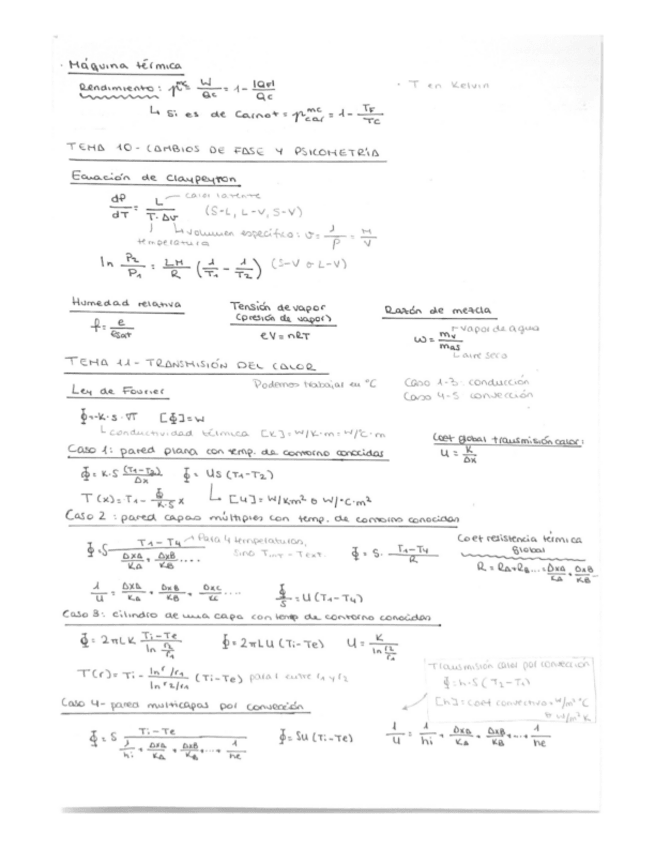 · Máquina térmica
Rendimiento: η^MC = W/Qc = 1 - |QF|/Qc · T en Kelvin
↳ Si es de Carnot = η^mc_car = 1 - TF/TC
TEMA 10 - CAMBIOS DE FASE Y PSICOMETRÍA
Ecuación de Claypeyron
dP/dT = L/(T·Δv) calor latente (S-L, L-V, S-V)
↳ volumen específico: v = 1/ρ = M/V
temperatura
ln P2/P1 = LM/R (1/T1 - 1/T2) (S-V o L-V)
Humedad relativa Tensión de vapor Razón de mezcla
(presión de vapor)
f = e/esat eV = nRT w = mv/mas vapor de agua
aire seco
TEMA 11 - TRANSMISIÓN DEL CALOR
Ley de Fourier Podemos trabajar en °C Caso 1-3: conducción
Caso 4-5 convección
Φ = -K·S·∇T [Φ] = W
↳ conductividad térmica [K] = W/K·m = W/°C·m
Caso 1: pared plana con temp. de contorno conocidas Coef global transmisión calor:
Φ = K·S (T1-T2)/Δx Φ = US (T1-T2) U = K/Δx
T(x) = T1 - Φ/(K·S) x ↳ [U] = W/Km² o W/°C·m²
Caso 2: pared capas múltiples con temp. de contorno conocidas
Φ = S (T1-T4)/(ΔxA/KA + ΔxB/KB ....) Para 4 temperaturas, sino Tint - Text. Φ = S· (T1-T4)/R Coef resistencia térmica global
R = RA+RB... = ΔxA/KA + ΔxB/KB
1/U = ΔxA/KA + ΔxB/KB + ΔxC/KC .... Φ/S = U(T1-T4)
Caso 3: cilindro de una capa con temp de contorno conocidas
Φ = 2πLK (Ti-Te)/(ln r2/r1) Φ = 2πLU (Ti-Te) U = K/(ln r2/r1)
T(r) = Ti - (ln r/r1)/(ln r2/r1) (Ti-Te) para r entre r1 y r2
Transmisión calor por convección
Φ = h·S (T2-T1)
[h] = coef convectivo = W/m²°C
o W/m²K
Caso 4 - pared multicapas por convección
Φ = S (Ti-Te)/(1/hi + ΔxA/KA + ΔxB/KB + ... + 1/he) Φ = SU (Ti-Te) 1/U = 1/hi + ΔxA/KA + ΔxB/KB + ... + 1/he